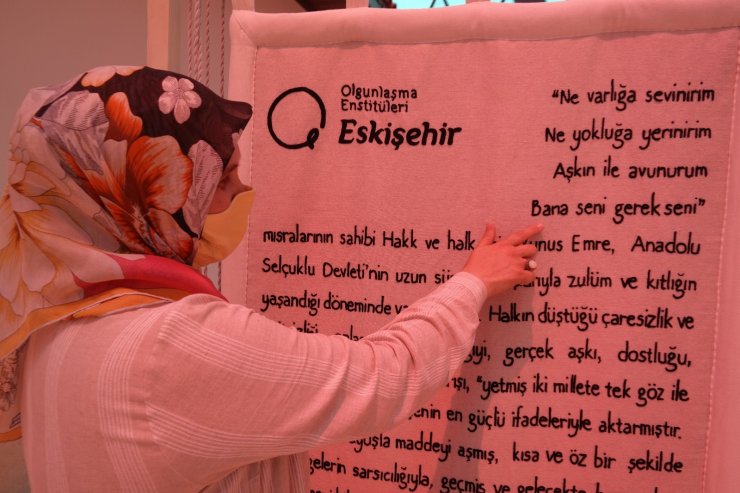 Olgunlaşma
Enstitüleri
Eskişehir
“Ne varlığa sevinirim
Ne yokluğa yerinirim
Aşkın ile avunurum
Bana seni gerek seni”
mısralarının sahibi Hakk ve halk Emre, Anadolu
Selçuklu Devleti’nin uzun zulüm ve kıtlığın
yaşandığı döneminde Halkın düştüğü çaresizlik ve
gerçek aşkı, dostluğu,
“yetmiş iki millete tek göz ile
en güçlü ifadeleriyle aktarmıştır.
maddeyi aşmış, kısa ve öz bir şekilde
sarsıcılığıyla, geçmiş ve gelecekte